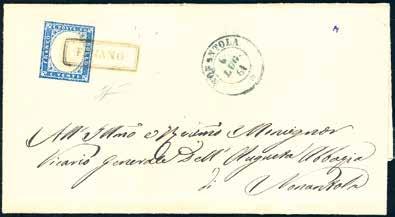 FRANCO
C. POSTE
BOLLO
C. VENTI
FANANO
NONANTOLA
6
LUG.
61
All' Illmo e Revmo Monsignor
Vicario Generale dell' Augusta Abbazia
di Nonantola